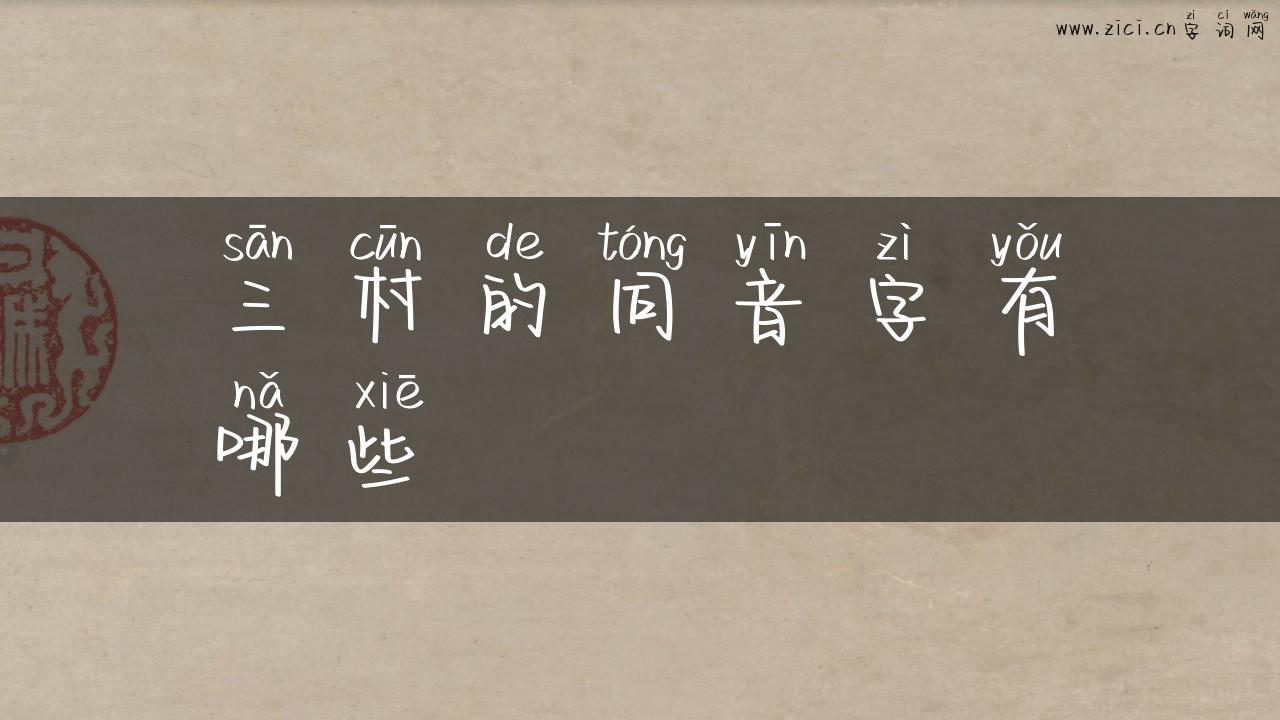 zì cí wǎng
www.zici.cn 字词网
sān cūn de tóng yīn zì yǒu
三村的同音字有
nǎ xiē
哪些